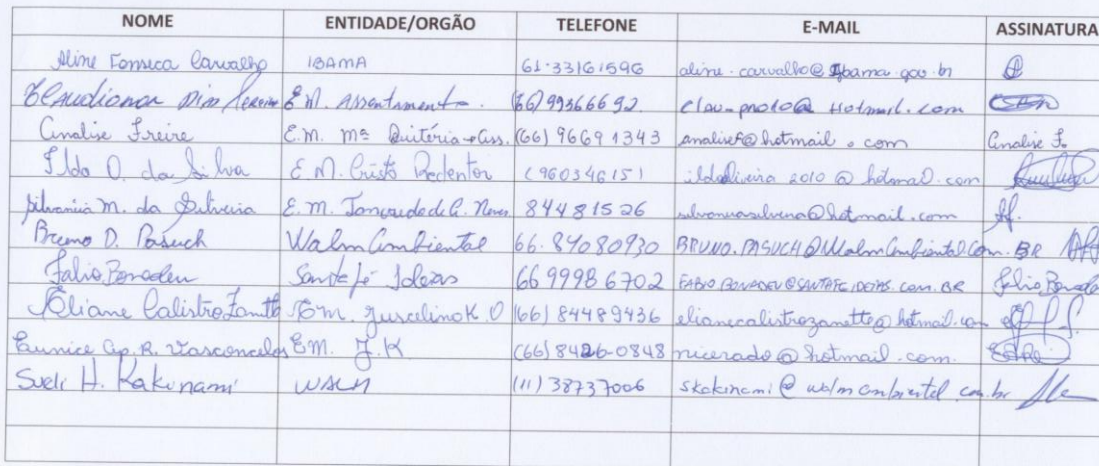 NOME ENTIDADE/ORGÃO TELEFONE E-MAIL ASSINATURA
Aline Fonseca Carvalho IBAMA 61-33161596 aline.carvalho@ibama.gov.br
Claudionor Dias Pereira E M. Assentamento. (66) 99366692 clau-proto@Hotmail.com
Analise Freire E.M. Mª Quitéria (66) 96691343 analisef@hotmail.com Analise F.
Ildo O. da Silva E M. Cristo Redentor (960346151 ildoliveira2010@hotmail.com
Silvania M. da Silveira E.M. Tancredo de A. Neves 84481526 silvaniasilveira@hotmail.com
Bruno D. Pasuch Walm Ambiental 66.84080930 BRUNO.PASUCH@WalmAmbiental.Com.BR
Fabio Bonadeu Santa fé Ideias 66 99986702 FABIO.BONADEU@SANTAFEIDEIAS.COM.BR Fabio Bonadeu
Eliane Calistro Zanette E m. Juscelino K. O (66) 84489436 elianecalistrozanette@hotmail.com
Eunice Ap. R. Vasconcelos E M. J. K (66) 8426-0848 nicerado@hotmail.com.
Sueli H. Kakinami WALM (11) 38737006 skakinami@walmambiental.com.br